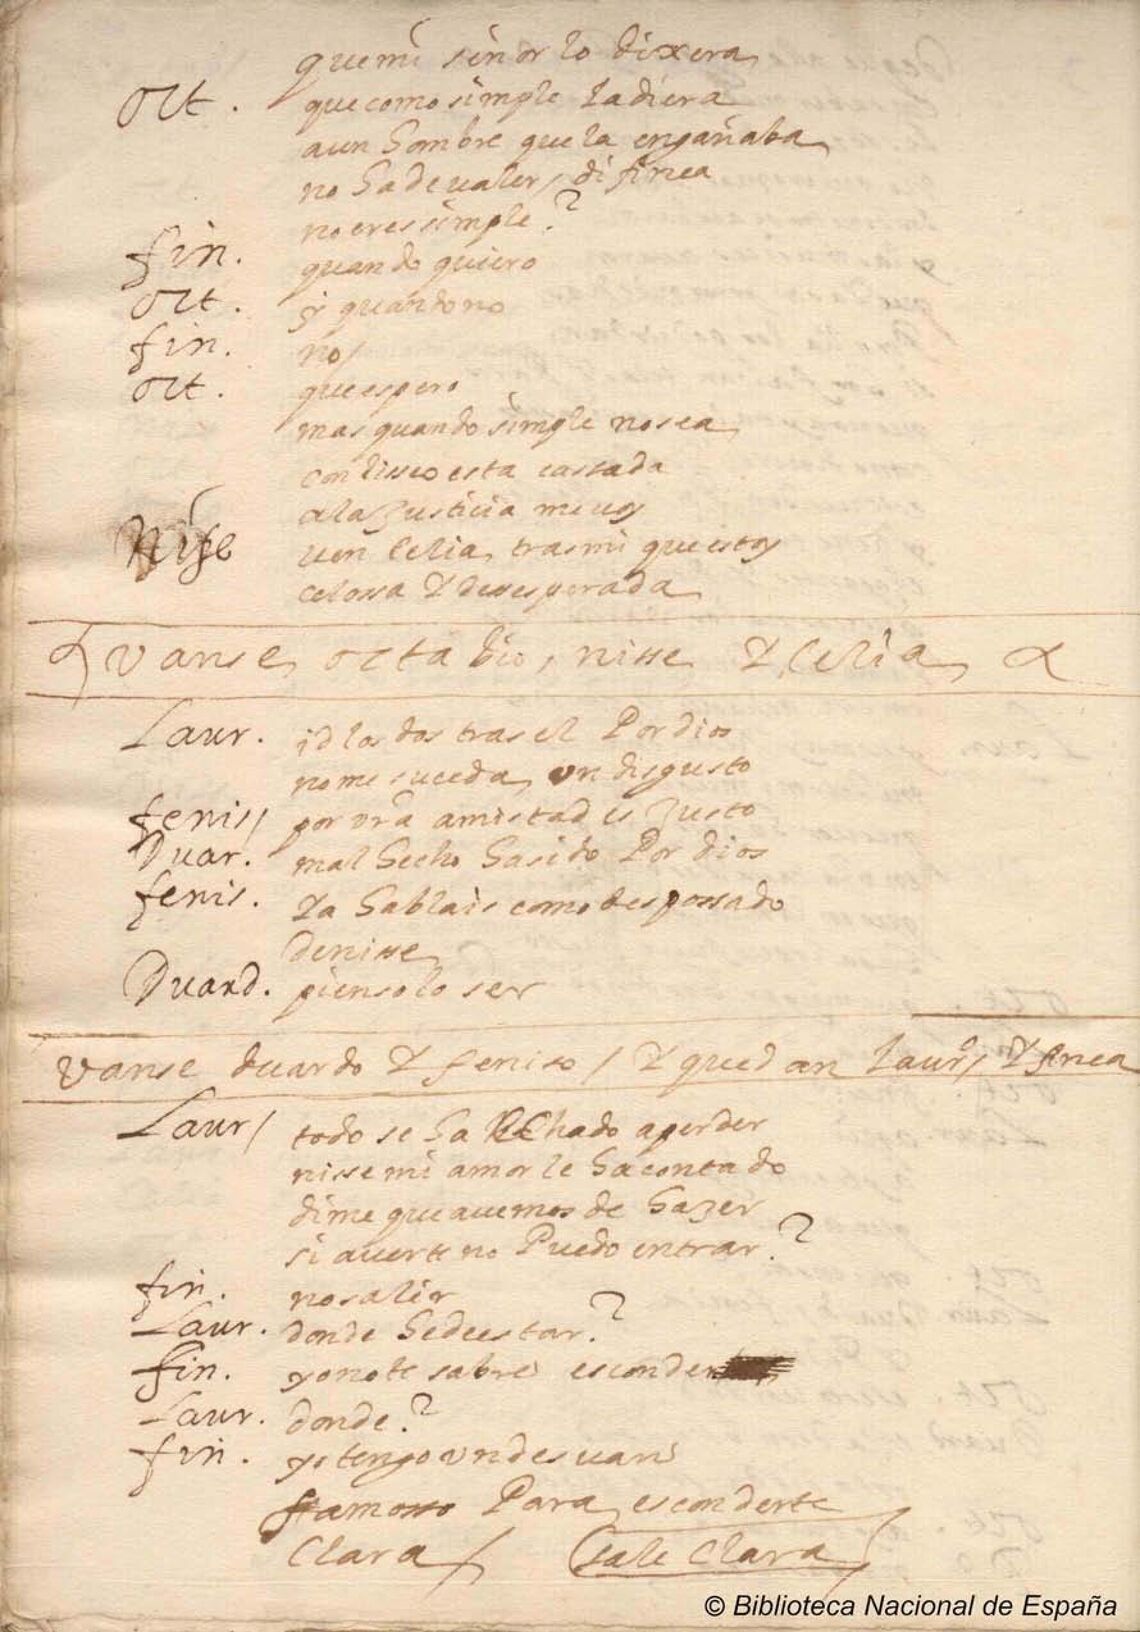 que mi señor lo dixera
Oct. que como simple la diera
a un hombre que la engañaba
no ha de valer / di finea
no eres simple?
fin. quando quiero
Oct. y quando no
fin. no /
Oct. que espero
mas quando simple no sea
con liseo esta cassada
a la Justicia me voy
Nise ven Celia, tras mi que estoy
celossa y desesperada
vanse octabio, nisse y Celia
Laur. id los dos tras el Por dios
no me suceda, un disgusto
fenis/ por vra amistad es Justo
Duar. mal hecho ha sido Por dios
fenis. ya hablais como despossado
de nisse
Duard. pienso lo ser
vanse duardo y feniso / y quedan Laurº / y finea
Laur/ todo se ha hechado a perder
nisse mi amor le ha contado
dime que auemos de hazer
si a uerte no Puedo entrar?
fin. no salir
Laur. donde he de estar?
fin. yo no te sabre esconder
Laur. donde?
fin. yo tengo un desuan
famosso Para esconderte
Clara / sale Clara
© Biblioteca Nacional de España